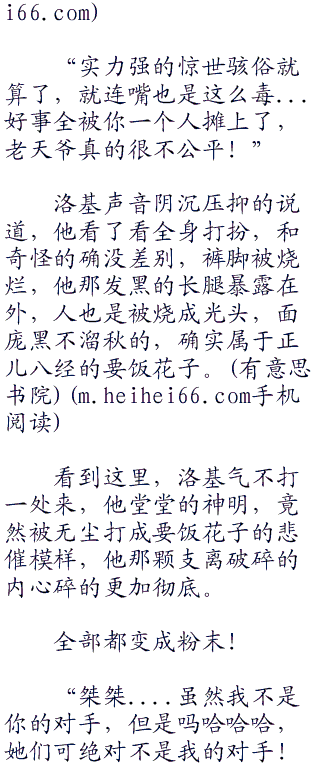 i66.com)
“实力强的惊世骇俗就
算了，就连嘴也是这么毒...
好事全被你一个人摊上了，
老天爷真的很不公平！”
洛基声音阴沉压抑的说
道，他看了看全身打扮，和
奇怪的确没差别，裤脚被烧
烂，他那发黑的长腿暴露在
外，人也是被烧成光头，面
庞黑不溜秋的，确实属于正
儿八经的要饭花子。(有意思
书院)(m.heihei66.com手机
阅读)
看到这里，洛基气不打
一处来，他堂堂的神明，竟
然被无尘打成要饭花子的悲
催模样，他那颗支离破碎的
内心碎的更加彻底。
全部都变成粉末！
“桀桀....虽然我不是
你的对手，但是吗哈哈哈，
她们可绝对不是我的对手！